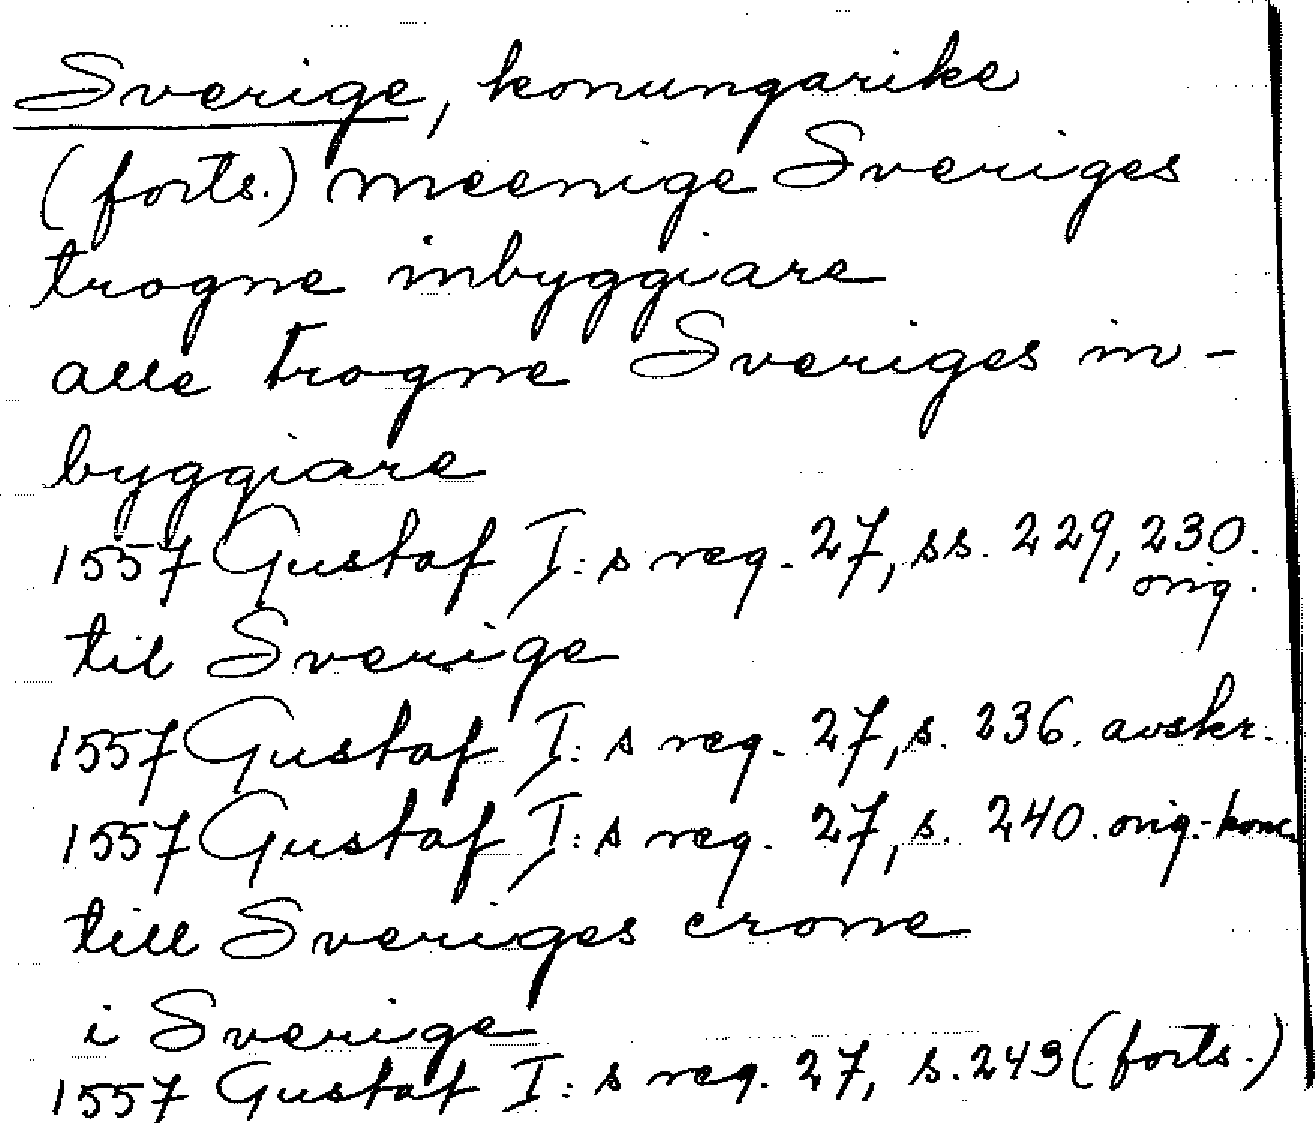 Sverige, konungarike
(forts.) meenige Sveriges
trogne inbyggiare
alle trogne Sveriges in-
byggiare
1557 Gustaf I:s reg. 27, ss. 229, 230.
orig.
til Sverige
1557 Gustaf I:s reg. 27, s. 236. avskr.
1557 Gustaf I:s reg. 27, s. 240. orig.-konc.
till Sveriges crone
i Sverige
1557 Gustaf I:s reg. 27, s. 243 (forts.)